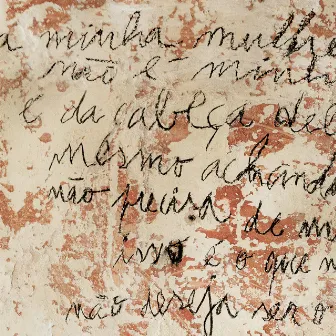 a minha mulh
não é minh
é da cabeça del
mesmo achand
não precisa de m
isso é o que m
não deseja ser o